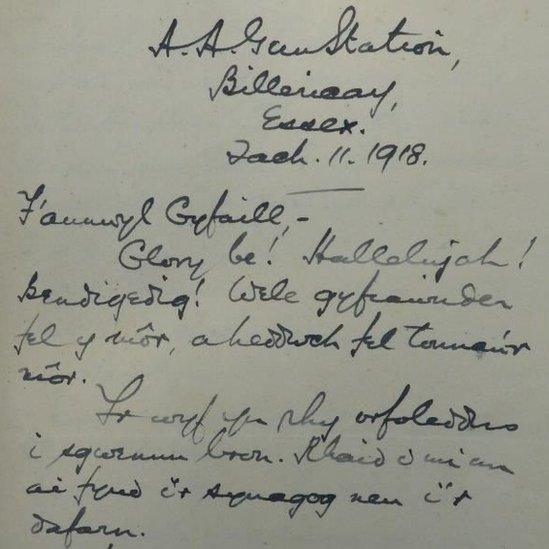 A. A. Gun Station,
Billericay,
Essex.
Tach. 11. 1918.
F'annwyl Gyfaill,-
Glory be! Hallelujah!
Bendigedig! Wele gyfiawnder
fel y môr, a heddwch fel tonnau'r
môr.
Yr wyf yn rhy orfoleddus
i sgwennu bron. Rhaid i mi un
ai fynd i'r synagog neu i'r
dafarn.